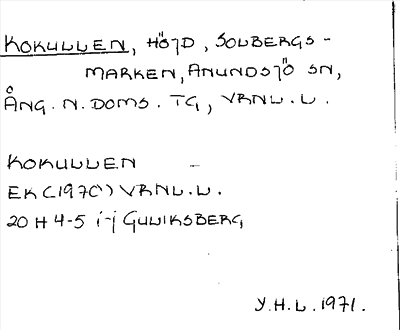 KOKULLEN, HÖJD, SOLBERGS-
MARKEN, ANUNDSJÖ SN,
ÅNG. N. DOMS. TG, VRNL. L.
KOKULLEN
EK (1970) VRNL. L.
20 H 4-5 i-j GULIKSBERG
Y.H.L. 1971.